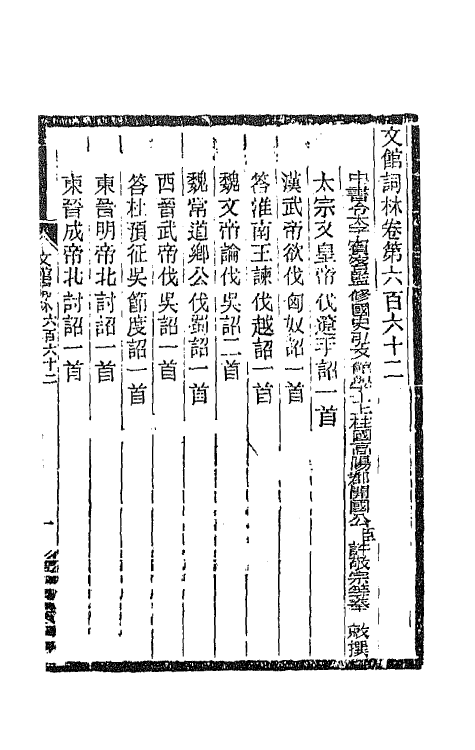 文館詞林卷第六百六十二
中書令太子賓客監修國史弘文館學士上柱國高陽郡開國公臣許敬宗等奉 敕撰
太宗文皇帝伐遼手詔一首
漢武帝欲伐匈奴詔一首
答淮南王諫伐越詔一首
魏文帝論伐吳詔二首
魏常道鄉公伐蜀詔一首
西晉武帝伐吳詔一首
答杜預征吳節度詔一首
東晉明帝北討詔一首
東晉成帝北討詔一首
文館詞林六百六十二
一